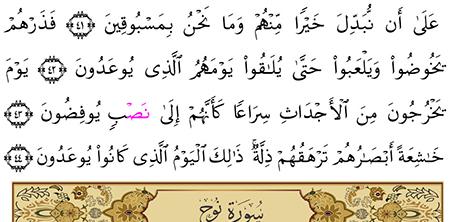 عَلَىٰٓ أَن نُّبَدِّلَ خَيْرًا مِّنْهُمْ وَمَا نَحْنُ بِمَسْبُوقِينَ ﴿٤١﴾ فَذَرْهُمْ
يَخُوضُوا۟ وَيَلْعَبُوا۟ حَتَّىٰ يُلَـٰقُوا۟ يَوْمَهُمُ ٱلَّذِى يُوعَدُونَ ﴿٤٢﴾ يَوْمَ
يَخْرُجُونَ مِنَ ٱلْأَجْدَاثِ سِرَاعًا كَأَنَّهُمْ إِلَىٰ نَصْبٍ يُوفِضُونَ ﴿٤٣﴾
خَـٰشِعَةً أَبْصَـٰرُهُمْ تَرْهَقُهُمْ ذِلَّةٌ ۚ ذَٰلِكَ ٱلْيَوْمُ ٱلَّذِى كَانُوا۟ يُوعَدُونَ ﴿٤٤﴾
سُورَةُ نُوحٍ